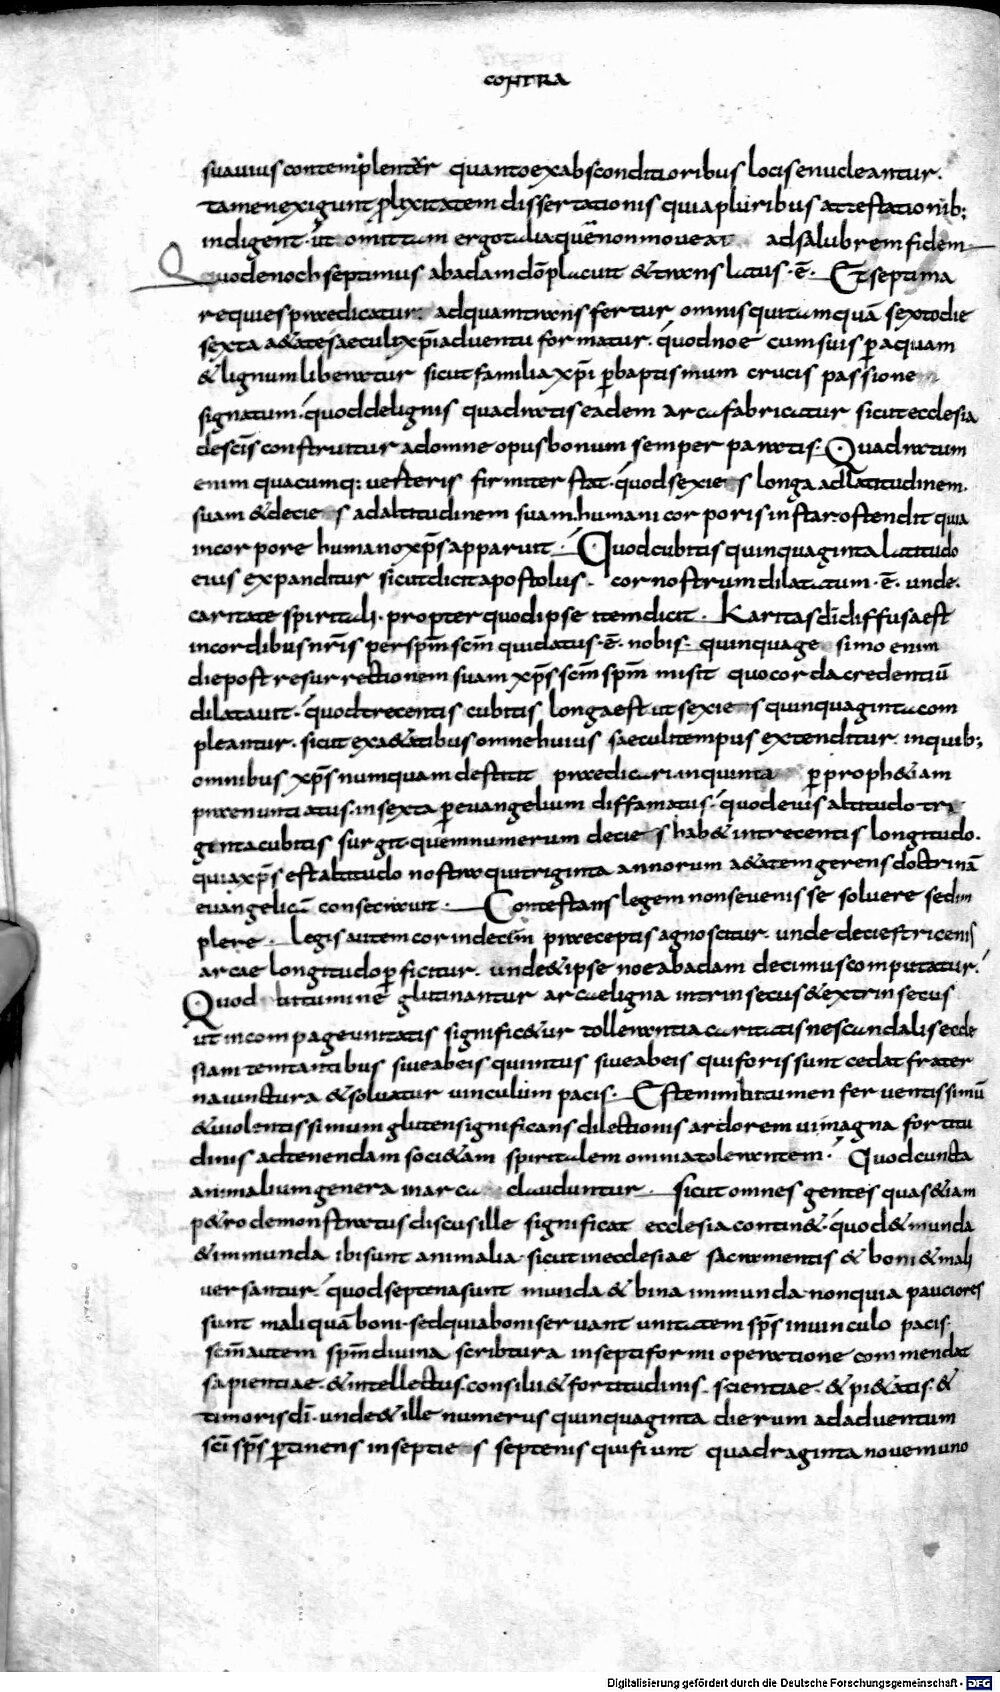 CONTRA
suauius contemplentur quanto ex absconditioribus locis enucleantur.
tamen exigunt plixitatem dissertationis quia pluribus attestationib;
indigent. ut omittam ergo talia quae non moueat ad salubrem fidem
Quod enoch septimus ab adam dõ placuit & translatus.ē. Et septima
requies praedicatur. ad quam transfertur omnis qui tamquã sexto die
sexta a&ate saeculi xp̄i aduentu formatur. quod noe cum suis p aquam
& lignum liberatur sicut familia xp̄i p baptismum crucis passione
signatum. quod de lignis quadratis eadem arca fabricatur sicut ecclesia
de sc̄is construitur ad omne opus bonum semper paratis. Quadratum
enim quacumq: uesteris firmiter stat. quod sexies longa ad latitudinem.
suam & decies ad altitudinem suam. humani corporis instar ostendit quia
in corpore humano xp̄s apparuit. Quod cubitis quinquaginta latitudo
eius expanditur sicut dicit apostolus. cor nostrum dilatatum.ē. unde.
caritate spiritali. propter quod ipse item dicit. Karitas dī diffusa est
in cordibus nr̄is per spm̄ scm̄ qui datus.ē. nobis. quinquagesimo enim
die post resurrectionem suam xp̄s scm̄ spm̄ misit quo corda credentiū
dilatauit. quod trecentis cubitis longa est ut sexies quinquaginta com
pleantur. sicut ex a&atibus omne huius saeculi tempus extenditur. in quib;
omnibus xp̄s numquam destitit praedicari. in quinta p proph&iam
praenuntiatus. in sexta p euangelium diffamatus. quod eius altitudo tri
ginta cubitis surgit. quem numerum decies hab& in trecentis longitudo.
quia xp̄s est altitudo nostra qui triginta annorum a&atem gerens doctrinā
euangelicā consecrauit. Contestans legem non se uenisse soluere sed im
plere. Legis autem cor in decim praeceptis agnoscitur. unde decies tricenis
arcae longitudo p ficitur. unde & ipse noe ab adam decimus computatur.
Quod bitumine glutinantur arcae ligna intrinsecus & extrinsecus
ut in compage unitatis signific&ur tollerantia caritatis ne scandalis eccle
siam temtantibus siue ab eis qui intus siue ab eis qui foris sunt cedat frater
na iunctura & soluatur uinculum pacis. Est enim bitumen feruentissimū
& uiolentissimum gluten significans dilectionis ardorem ui magna fortitu
dinis ad tenendam soci&am spiritalem omnia tolerantem. Quod cuncta
animalium genera in arca clauduntur. Sicut omnes gentes quas &iam
p&ro demonstratus discus ille significat ecclesia contin&. quod & munda
& inmunda ibi sunt animalia. sicut in ecclesiae sacramentis & boni & mali
uersantur. quod septena sunt munda & bina inmunda. non quia pauciores
sunt mali quā boni. sed quia boni seruant unitatem sp̄s in uinculo pacis.
scm̄ autem spm̄ diuina scribtura in septiformi operatione commendat
sapientiae. & intellectus. consilii & fortitudinis. scientiae. & pi&atis. &
timoris dī. unde & ille numerus quinquaginta dierum ad aduentum
sc̄i sp̄s ptinens in septies septenis qui fiunt quadraginta nouem uno